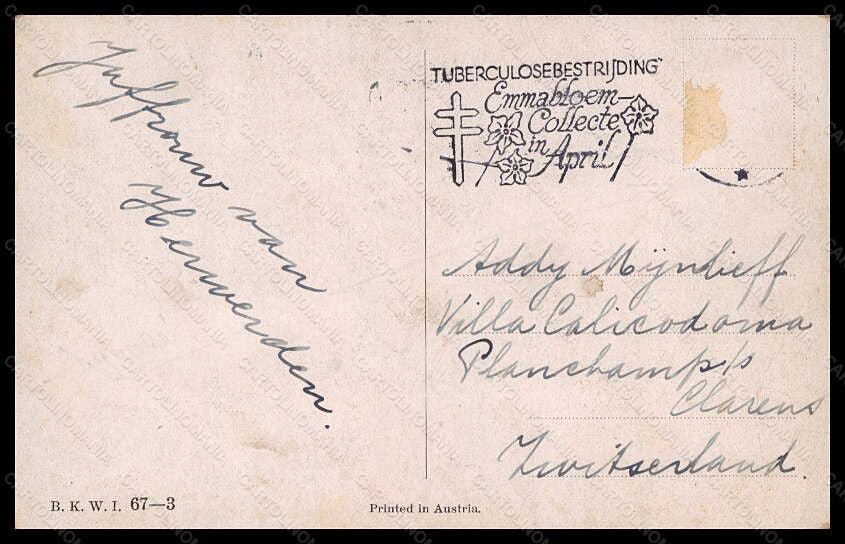 Juffrouw van
Herwerden.
TUBERCULOSEBESTRIJDING
Emmabloem-
Collecte
in April
Addy Mijnlieff
Villa Calicodoma
Planchamp s/
Clarens
Zwitserland.
B. K. W. I. 67—3
Printed in Austria.
CARTOLINOMANIA